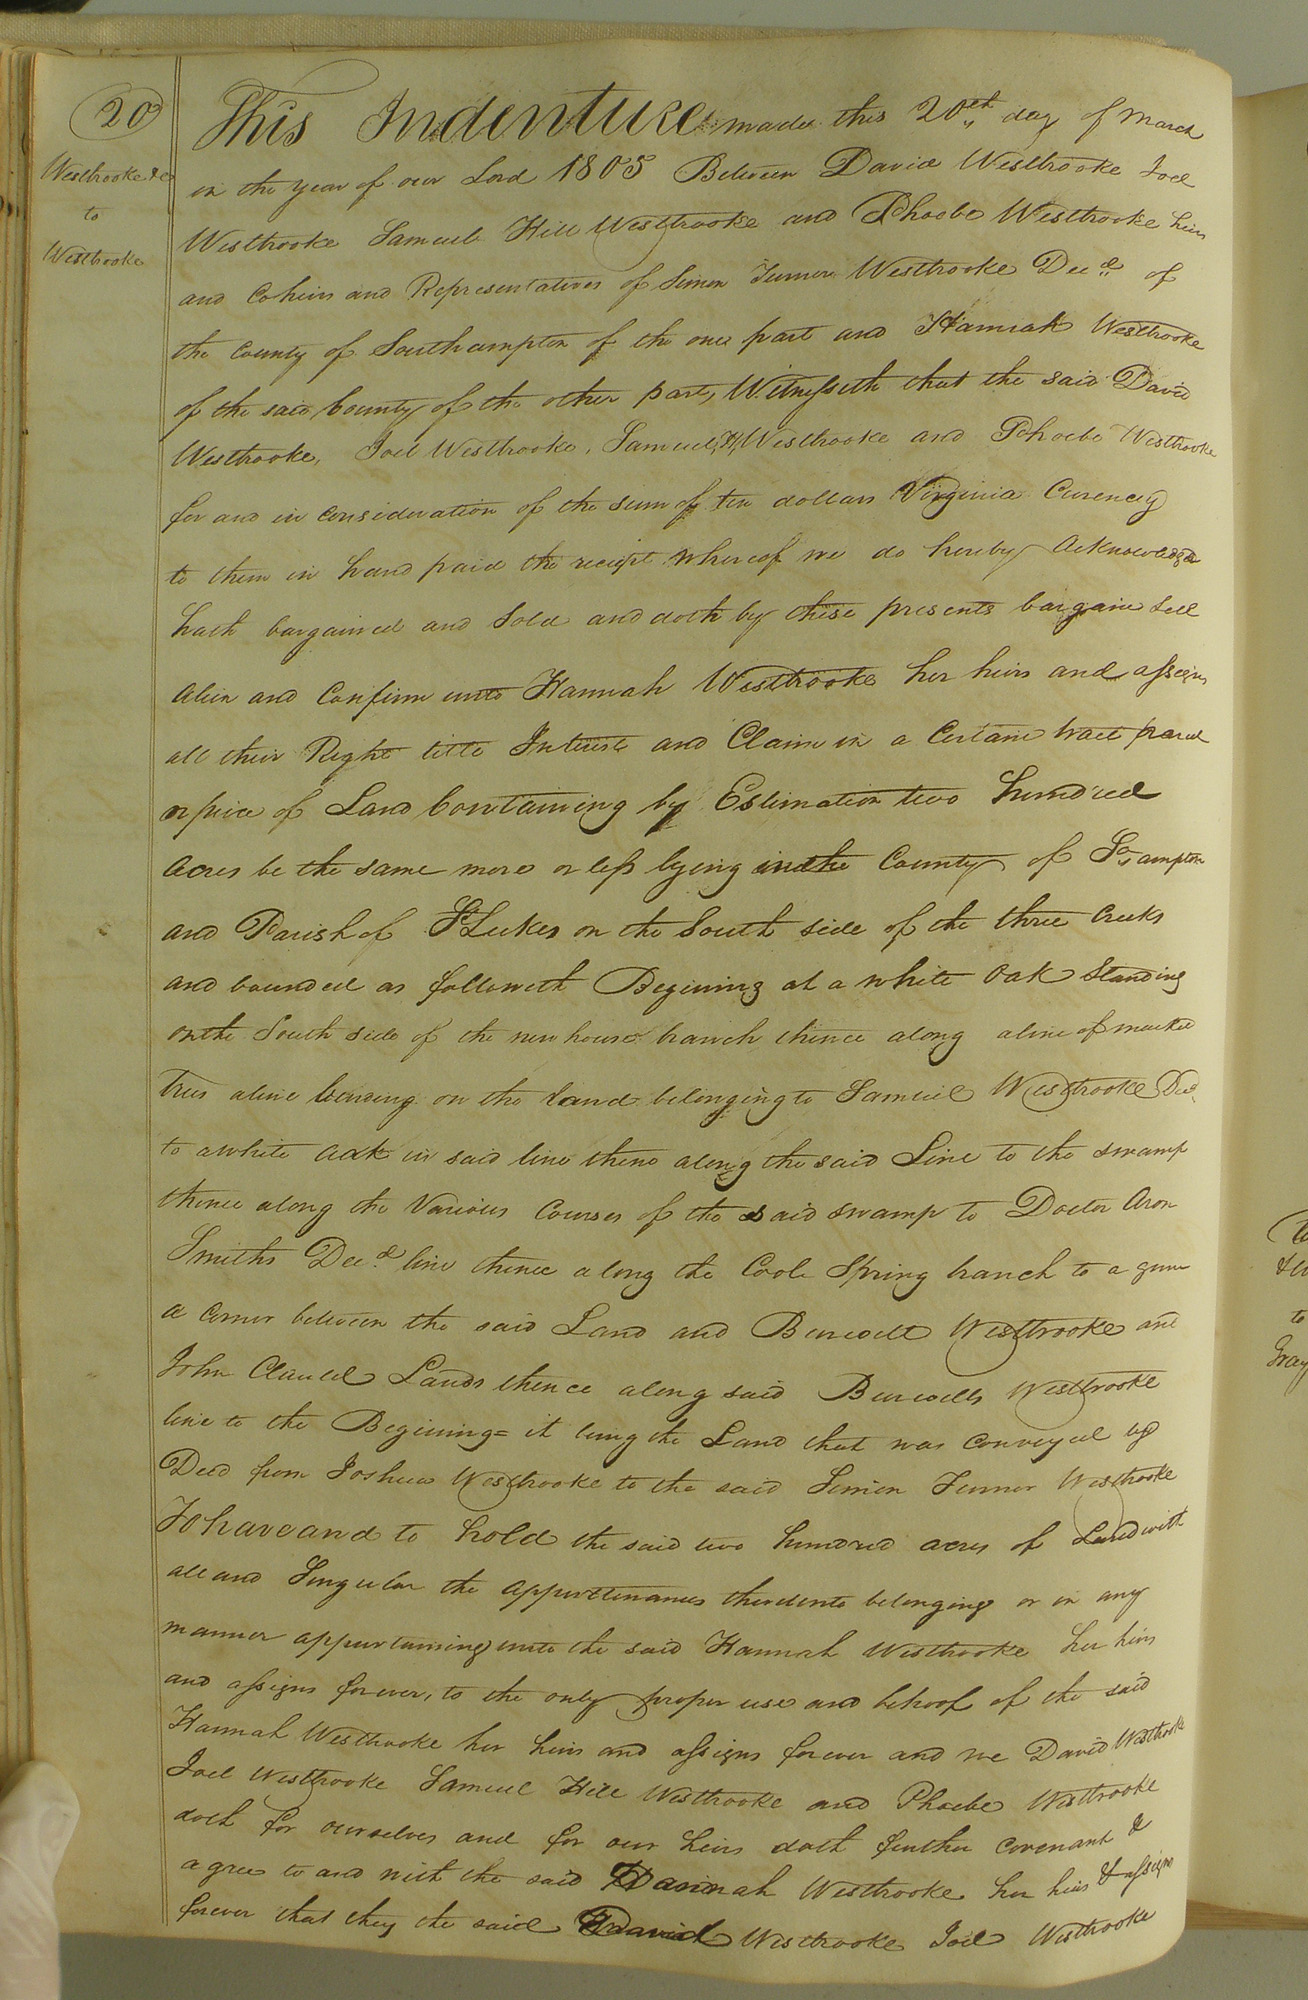 20
Westbrooke &c
to
Westbrooke
This Indenture made this 20th day of March
in the year of our Lord 1805 Between David Westbrooke Joel
Westbrooke Samuel Hill Westbrooke and Phoebe Westbrooke heirs
and Coheirs and Representatives of Simon Turner Westbrooke Decd of
the County of Southampton of the one part and Hannah Westbrooke
of the said County of the other part, Witnesseth that the said David
Westbrooke, Joel Westbrooke, Samuel H Westbrooke and Phoebe Westbrooke
for and in consideration of the sum of ten dollars Virginia Curency
to them in hand paid the reciept whereof we do hereby Acknowledge
hath bargained and Sold and doth by these presents bargain Sell
Alien and Confirm unto Hannah Westbrooke her heirs and assigns
all their Right title Interest and Claim in a Certain tract parcel
or piece of Land Containing by Estimation two hundred
Acres be the same more or less lying in the County of So,ampton
and Parish of St Lukes on the South side of the three Creeks
and bounded as followeth Begining at a white Oak Standing
on the South side of the new house branch thence along a line of marked
Trees a line on the land belonging to Samuel Westbrooke Decd
to a white oak in said line thence along the said Line to the swamp
thence along the Various Courses of the said swamp to Doctor Aron
Smiths Decd line thence along the Coole Spring branch to a gum
a corner between the said Land and Burwell Westbrooke and
John Claud Lands thence along said Burwells Westbrooke
line to the Begining = it being the Land that was conveyed by
Deed from Joshua Westbrooke to the said Simon Turner Westbrooke
To have and to hold the said two hundred acres of Land with
all and Singular the appurtenances thereunto belonging or in any
manner appurtaining unto the said Hannah Westbrooke her heirs
and assigns forever, to the only proper use and behoof of the said
Hannah Westbrooke her heirs and assigns forever and we David Westbrooke
Joel Westbrooke Samuel Hill Westbrooke and Phoebe Westbrooke
doth for ourselves and for our heirs doth further covenant &
agree to and with the said Hannah Westbrooke her heirs & assigns
forever that they the said David Westbrooke Joel Westbrooke
to
Gray